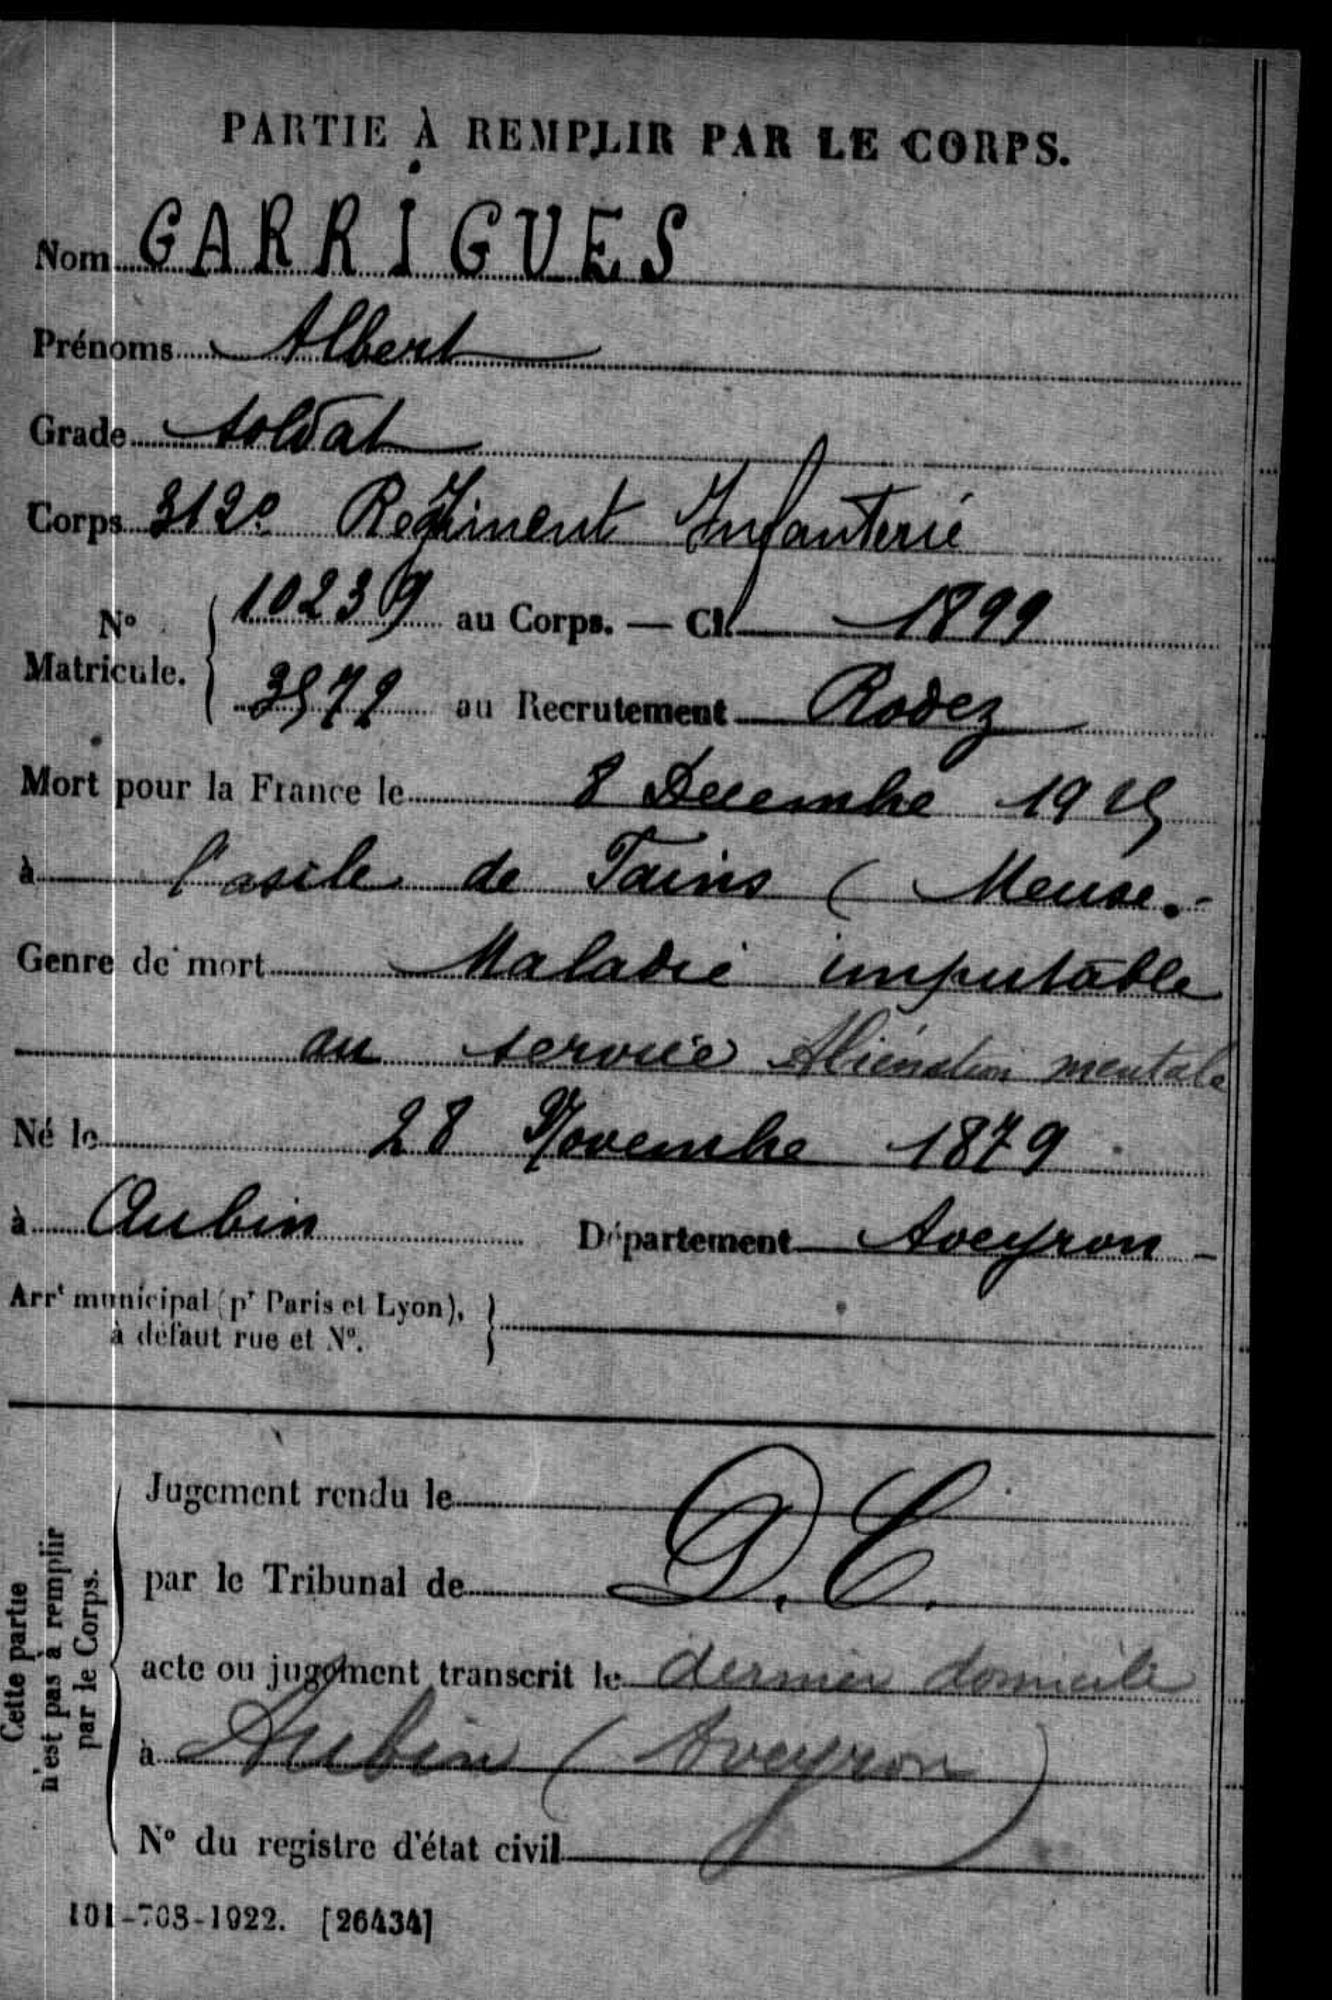 PARTIE À REMPLIR PAR LE CORPS.
Nom GARRIGUES
Prénoms Albert
Grade Soldat
Corps 312e Régiment Infanterie
N° Matricule. 10239 au Corps. — Cl. 1899
3972 au Recrutement Rodez
Mort pour la France le 8 Décembre 19
à l'asile de Fains (Meuse.-
Genre de mort Maladie imputable
au service Aliénation mentale
Né le 28 Novembre 1879
à Aubin Département Aveyron -
Arrt municipal (pr Paris et Lyon),
à défaut rue et N°.
Cette partie
n'est pas à remplir
par le Corps.
Jugement rendu le
par le Tribunal de D.C.
acte ou jugement transcrit le dernier domicile
à Aubin (Aveyron)
N° du registre d'état civil
101-708-1922. [26434]